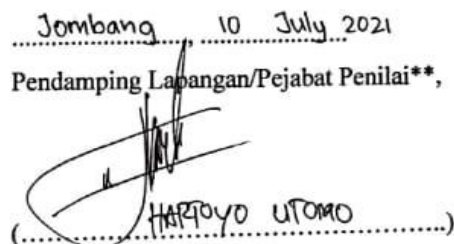 Jombang, 10 July 2021
Pendamping Lapangan/Pejabat Penilai**,
(HARTOYO UTOMO)